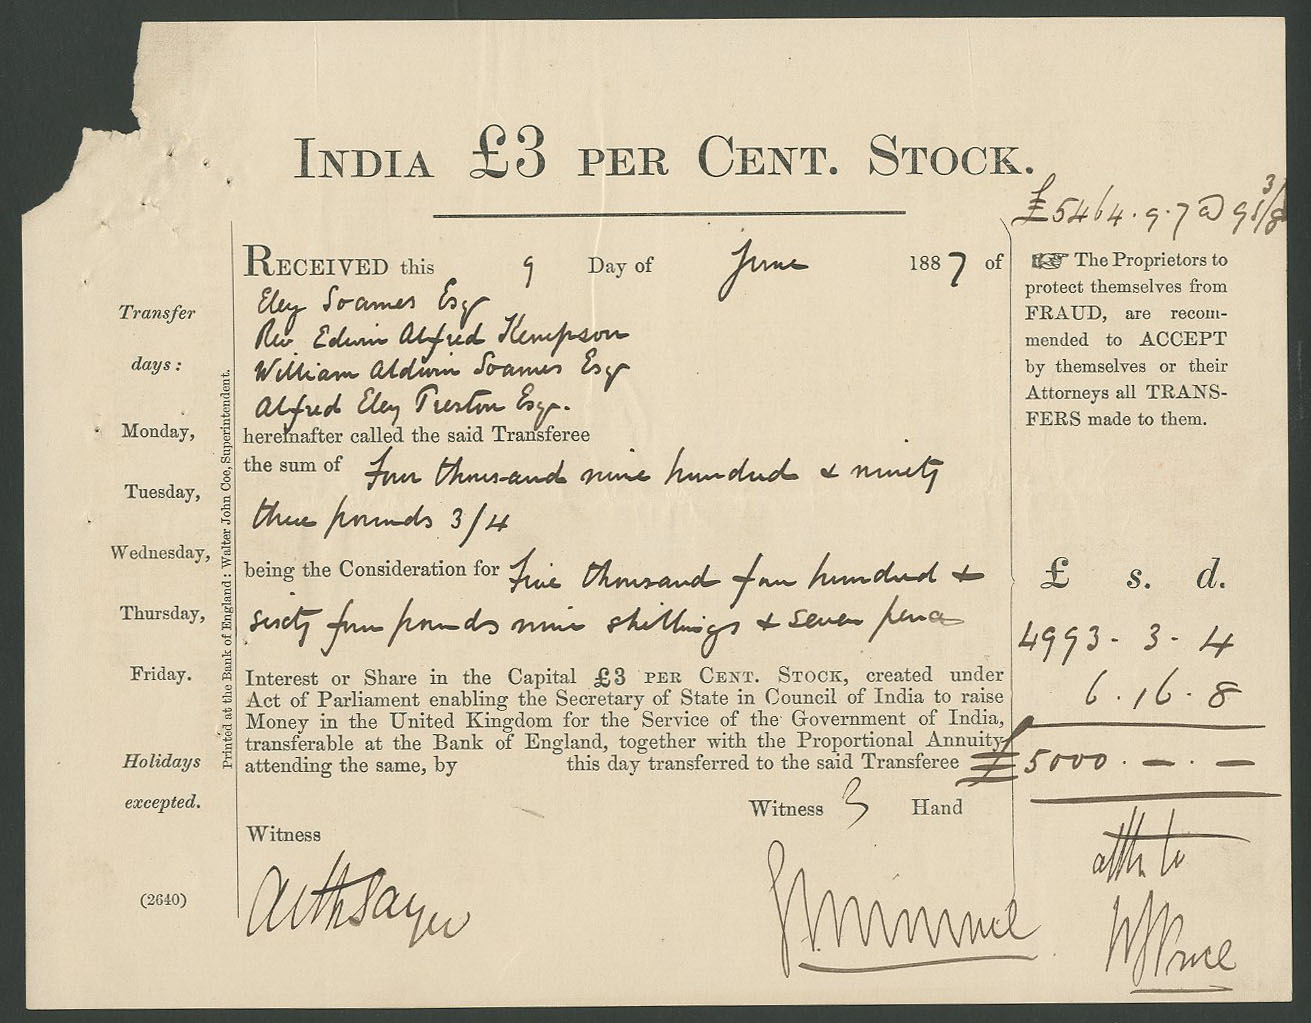 INDIA £3 PER CENT. STOCK.
£5464.9.7 @ 91 3/8
RECEIVED this 9 Day of June 1887 of
Eley Soames Esqr
Rev Edwin Alfred Kempson
William Aldwin Soames Esqr
Alfred Eley Preston Esqr.
hereinafter called the said Transferee
the sum of Four thousand nine hundred & ninety
three pounds 3/4
being the Consideration for Five thousand four hundred &
sixty four pounds nine shillings & seven pence
Interest or Share in the Capital £3 PER CENT. STOCK, created under
Act of Parliament enabling the Secretary of State in Council of India to raise
Money in the United Kingdom for the Service of the Government of India,
transferable at the Bank of England, together with the Proportional Annuity
attending the same, by this day transferred to the said Transferee
Witness Hand
Witness
Transfer
days:
Monday,
Tuesday,
Wednesday,
Thursday,
Friday.
Holidays
excepted.
(2640)
Printed at the Bank of England: Walter John Coe, Superintendent.
☞ The Proprietors to
protect themselves from
FRAUD, are recom-
mended to ACCEPT
by themselves or their
Attorneys all TRANS-
FERS made to them.
£ s. d.
4993-3-4
6.16.8
£5000.—.—